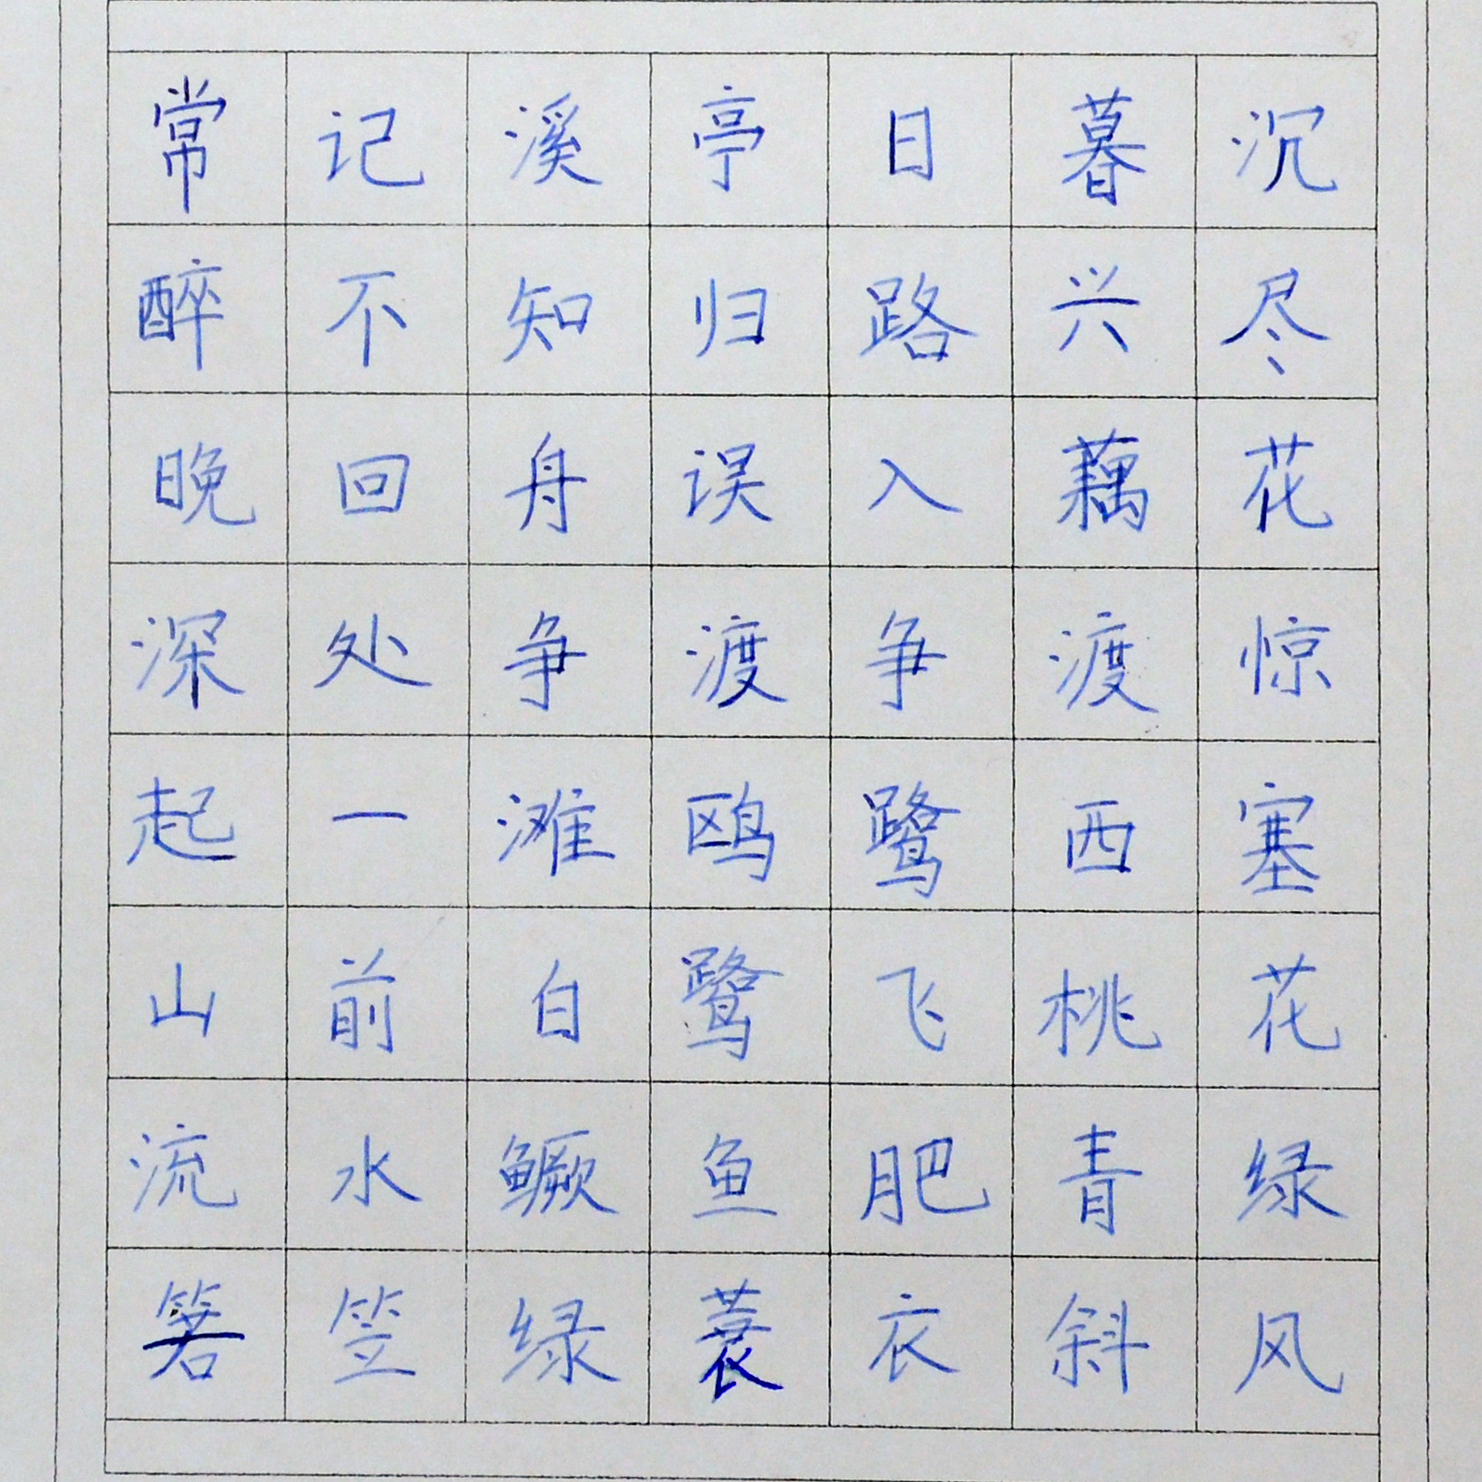 常记溪亭日暮沉
醉不知归路兴尽
晚回舟误入藕花
深处争渡争渡惊
起一滩鸥鹭西塞
山前白鹭飞桃花
流水鳜鱼肥青绿
箬笠绿蓑衣斜风